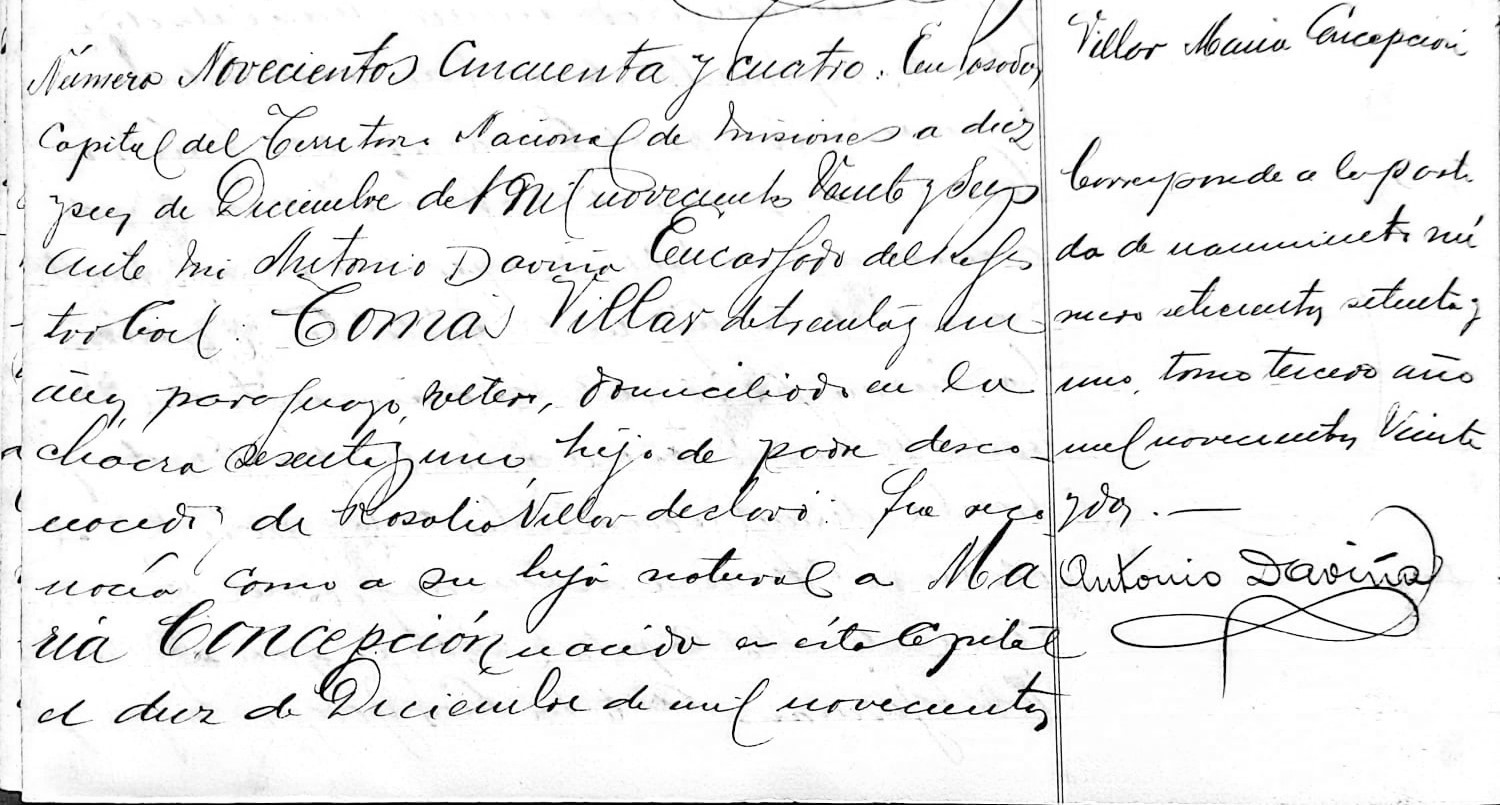 Número Novecientos Cincuenta y cuatro. En Posadas
Capital del Territorio Nacional de Misiones a diez
y seis de Diciembre de Mil novecientos Veinte y Seis
Ante mi Antonio Daviña Encargado del Regis
tro Civil: Tomás Villar de treinta y un
años, paraguayo, soltero, domiciliado en la
chacra sesenta y uno, hijo de padre desco-
nocido y de Rosalia Villar declaró: Que reco-
nocía como a su hija natural a Ma
ria Concepción nacida en ésta Capital
el diez de Diciembre de mil novecientos
Villar Maria Concepción
Corresponde a la parti-
da de nacimiento nú
mero setecientos setenta y
uno, tomo tercero año
mil novecientos Veinte
y dos. —
Antonio Daviña